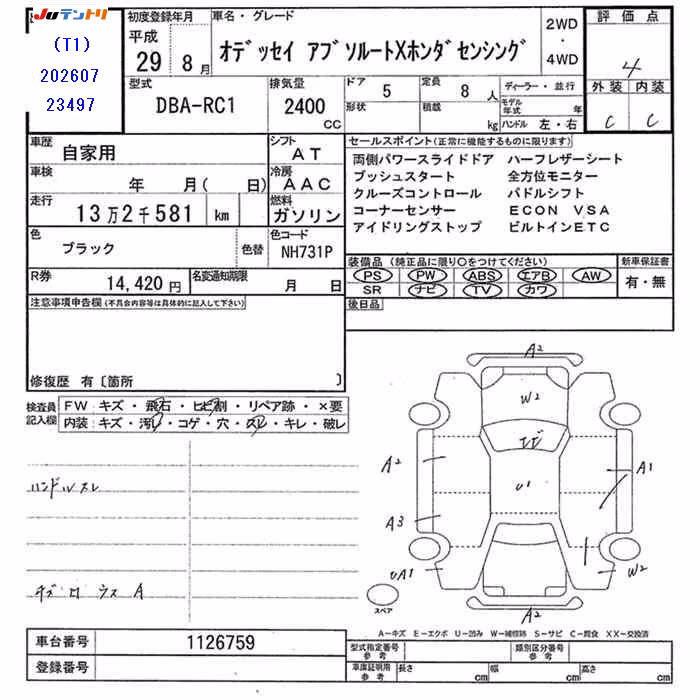 JUテントリ
(T1)
202607
23497
初度登録年月
平成
29年 8月
車名・グレード
オデッセイ アブソルートXホンダセンシング
2WD
・
4WD
評価点
4
外装 内装
C C
型式
DBA-RC1
排気量
2400
CC
ドア 5
形状
定員 8人
積載 kg
ディーラー・並行
モデル年式 年
ハンドル 左・右
車歴 自家用
シフト AT
車検 年 月( 日)
冷房 AAC
走行 13万2千581 km
燃料 ガソリン
色 ブラック 色替
色コード NH731P
R券 14,420円
名変通知期限 月 日
セールスポイント(正常に機能するものに限ります)
両側パワースライドドア ハーフレザーシート
プッシュスタート 全方位モニター
クルーズコントロール パドルシフト
コーナーセンサー ECON VSA
アイドリングストップ ビルトインETC
装備品(純正品に限り○をつけてください)
PS PW ABS エアB AW
SR ナビ TV カワ
新車保証書
有・無
後日品
注意事項申告欄(不具合内容等は具体的に記入して下さい)
修復歴 有〔箇所 〕
検査員記入欄
FW:キズ・飛石・ヒビ割・リペア跡・×要
内装:キズ・汚れ・コゲ・穴・スレ・キレ・破レ
ハンドルスレ
A2
W2
エビ
U1
A2
A1
A3
UA1
W2
A2
スペア
A-キズ E-エクボ U-凹み W-補修跡 S-サビ C-腐食 XX-交換済
車台番号 1126759
登録番号
型式指定番号 参考
類別区分番号 参考
車庫証明用 参考
長さ cm 幅 cm 高さ cm